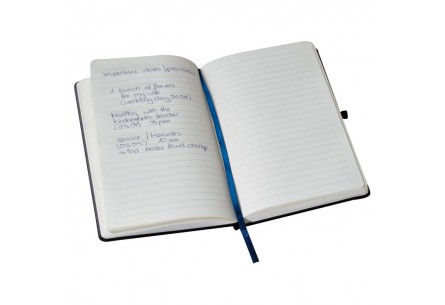 Important dates /
1 bunch of flowers
for my wife
(wedding day
Meeting with the
kindergarten teacher
3 pm
service / Mercedes
10 am
brake fluid change